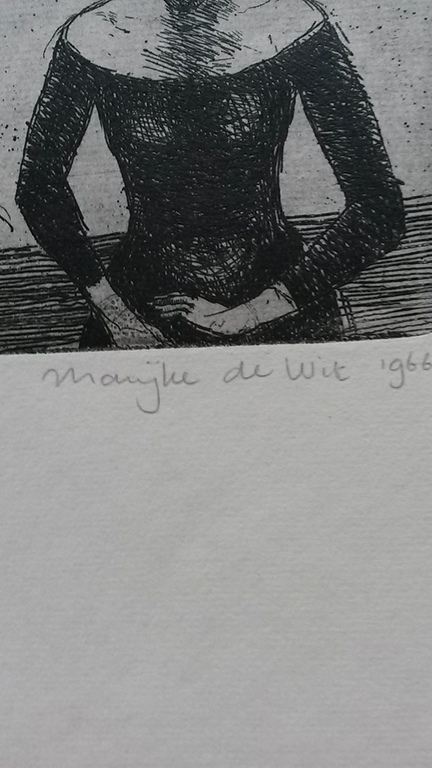 Marijke de Wit 1966